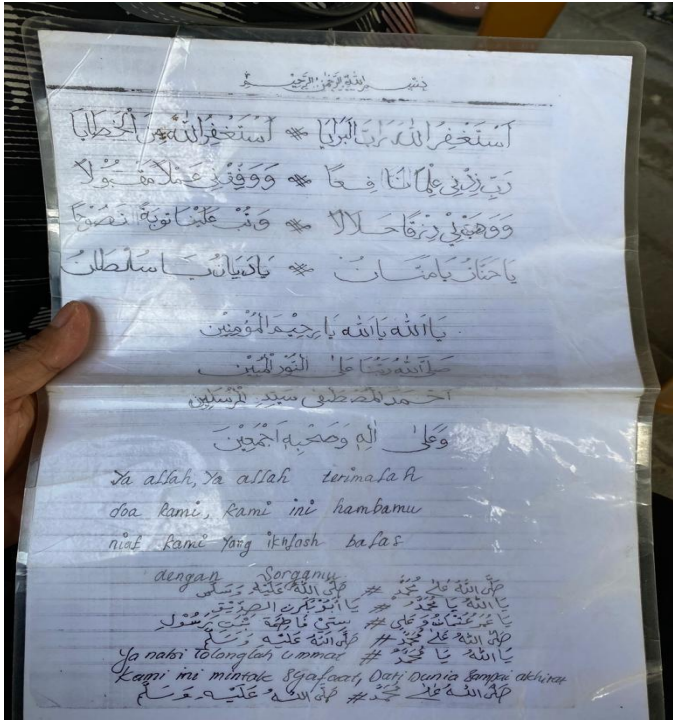 بِسْــــمِ اللهِ الرَّحْمٰنِ الرَّحِيْـــمِ
اَسْتَغْفِرُ اللهَ رَبَّ الْبَرَايَا # اَسْتَغْفِرُ اللهَ مِنَ الْخَطَايَا
رَبِّ زِدْنِي عِلْمًا نَافِعًا # وَوَفِّقْنِي عَمَلًا مَقْبُوْلًا
وَوَهَبْ لِيْ رِزْقًا حَلَالًا # وَتُبْ عَلَيْنَا تَوْبَةً نَصُوْحًا
يَاحَنَّانُ يَامَنَّــانُ # يَادَيَانُ يَــا سُلْطَانُ
يَا اَللهُ يَا اَللهُ يَا رَحِيْمَ الْمُؤْمِنِيْنَ
صَلَّى اللهُ رَبُّنَا عَلَى النُّوْرِ الْمُبِيْنِ
اَحْــمَدَ الْمُصْطَفٰى سَيِّدِ الْمُرْسَلِيْنَ
وَعَلٰى اٰلِهٖ وَصَحْبِهٖ اَجْمَعِيْنَ
Ya allah, Ya allah terimalah
doa kami, kami ini hambamu
niat kami yang ikhlash balas
dengan Sorgamu
صَلَّى اللهُ عَلَى مُحَمَّدْ # صَلَّى اللهُ عَلَيْهِ وَسَلَّمْ
يَا اللهُ يَا مُحَمَّدْ # يَا اَبُوْبَكْرِنِ الصِّدِّيْقْ
يَا عُمَرْ عُثْمَانْ وَعَلِى # سِتِّيْ فَاطِمَةْ بِنْتِ رَسُوْلِ
صَلَّى اللهُ عَلَى مُحَمَّدْ # صَلَّى اللهُ عَلَيْهِ وَسَلَّمْ
يَا اللهُ يَا مُحَمَّدْ # Ya nabi tolonglah ummat
Kami ini mintak syafaat, Dari Dunia sampai akhirat
صَلَّى اللهُ عَلَى مُحَمَّدْ # صَلَّى اللهُ عَلَيْهِ وَسَلَّمْ